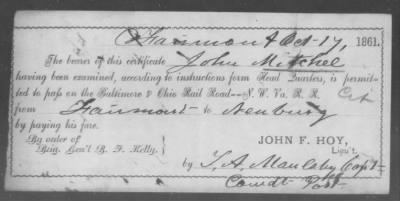 Fairmont Oct 17, 1861.
The bearer of this certificate John Mitchel
having been examined, according to instructions form Head Quarters, is permit-
ted to pass on the Baltimore & Ohio Rail Road--N. W. Va. R. R.
from Fairmont to Newburg
by paying his fare.
By order of
Brig. Gen'l B. F. Kelly.
JOHN F. HOY,
Lieu't.
by T. A. Maulsby Capt
Comdt Post